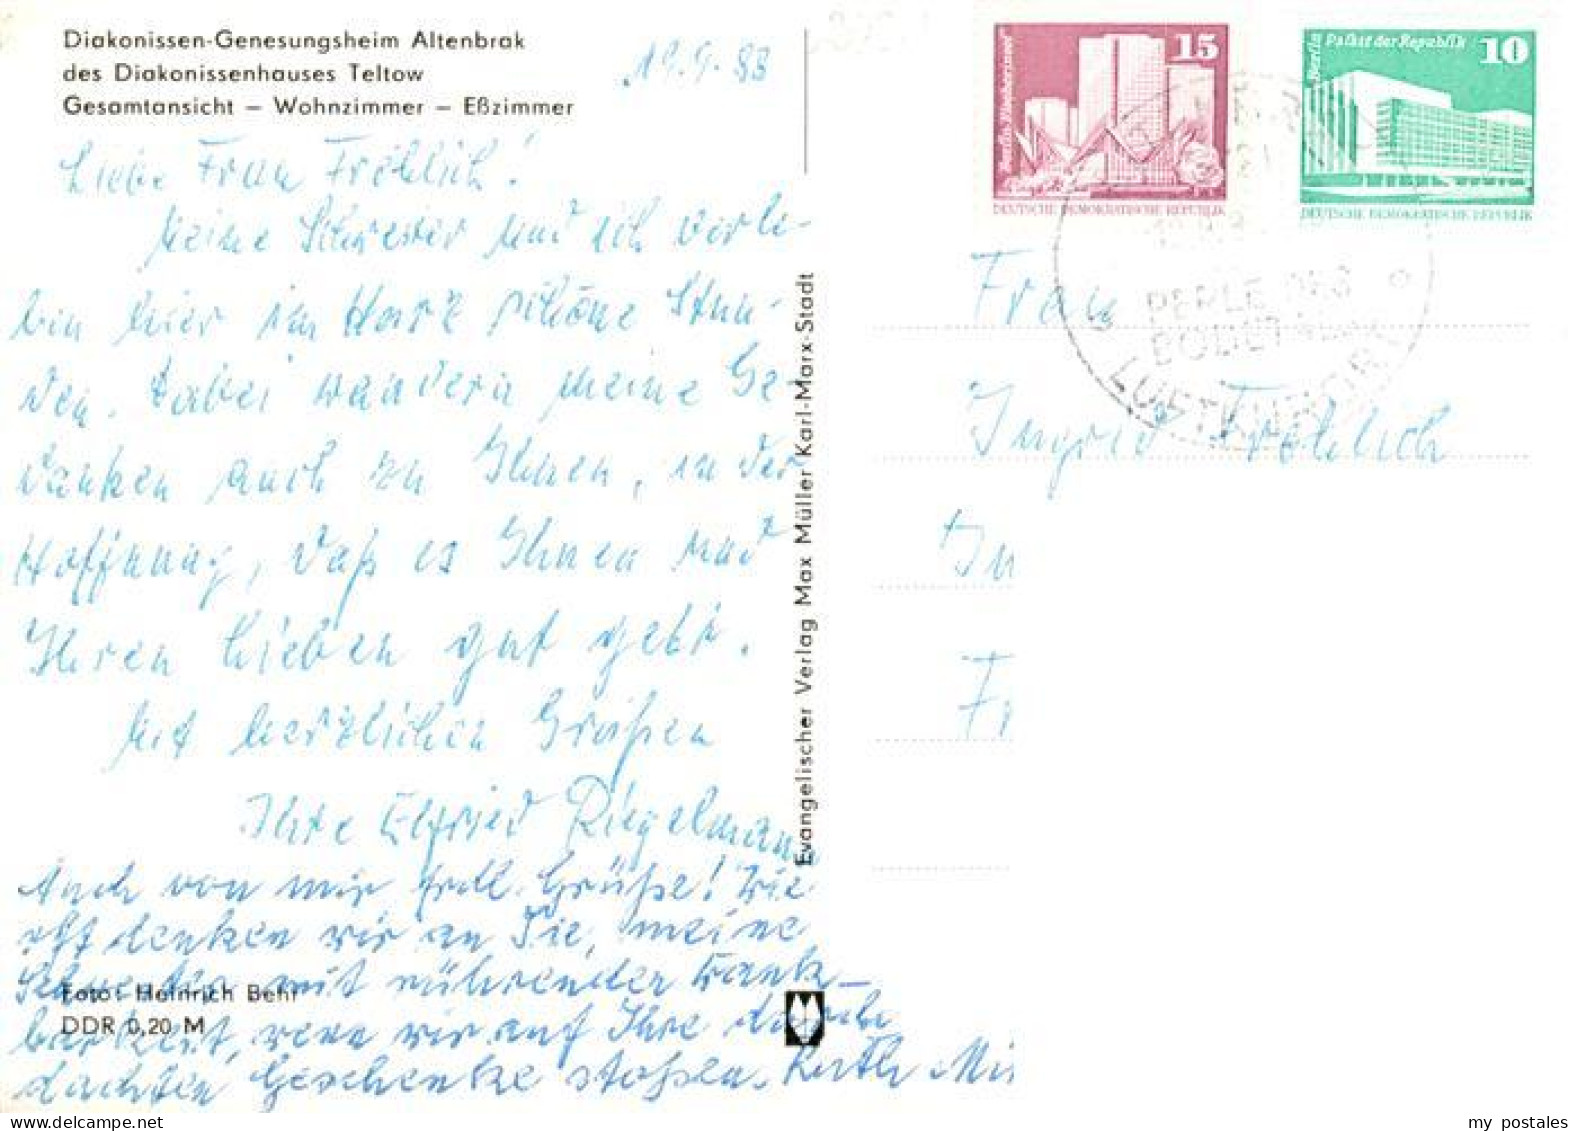 Diakonissen-Genesungsheim Altenbrak
des Diakonissenhauses Teltow
Gesamtansicht – Wohnzimmer – Eßzimmer
19.9.83
Liebe Frau Fröhlich!
Meine Schwester und ich verle-
ben hier im Harz schöne Stun-
den. Dabei wandern meine Ge-
danken auch zu Ihnen, in der
Hoffnung, daß es Ihnen und
Ihren Lieben gut geht.
Mit herzlichen Grüßen
Ihre Elfried Riegelmann
Auch von mir frdl. Grüße! Wie
oft denken wir an Sie, meine
Schwester mit rührender Dank-
barkeit, wenn wir auf Ihre
dachten Geschenke stoßen. Ruth
Foto: Heinrich Behr
DDR 0,20 M
Evangelischer Verlag Max Müller Karl-Marx-Stadt
Berlin
15
DEUTSCHE DEMOKRATISCHE REPUBLIK
Berlin Palast der Republik
10
DEUTSCHE DEMOKRATISCHE REPUBLIK
PERLE DES
BODETALES
LUFTKURORT
Frau
Ingrid Fröhlich
my postales